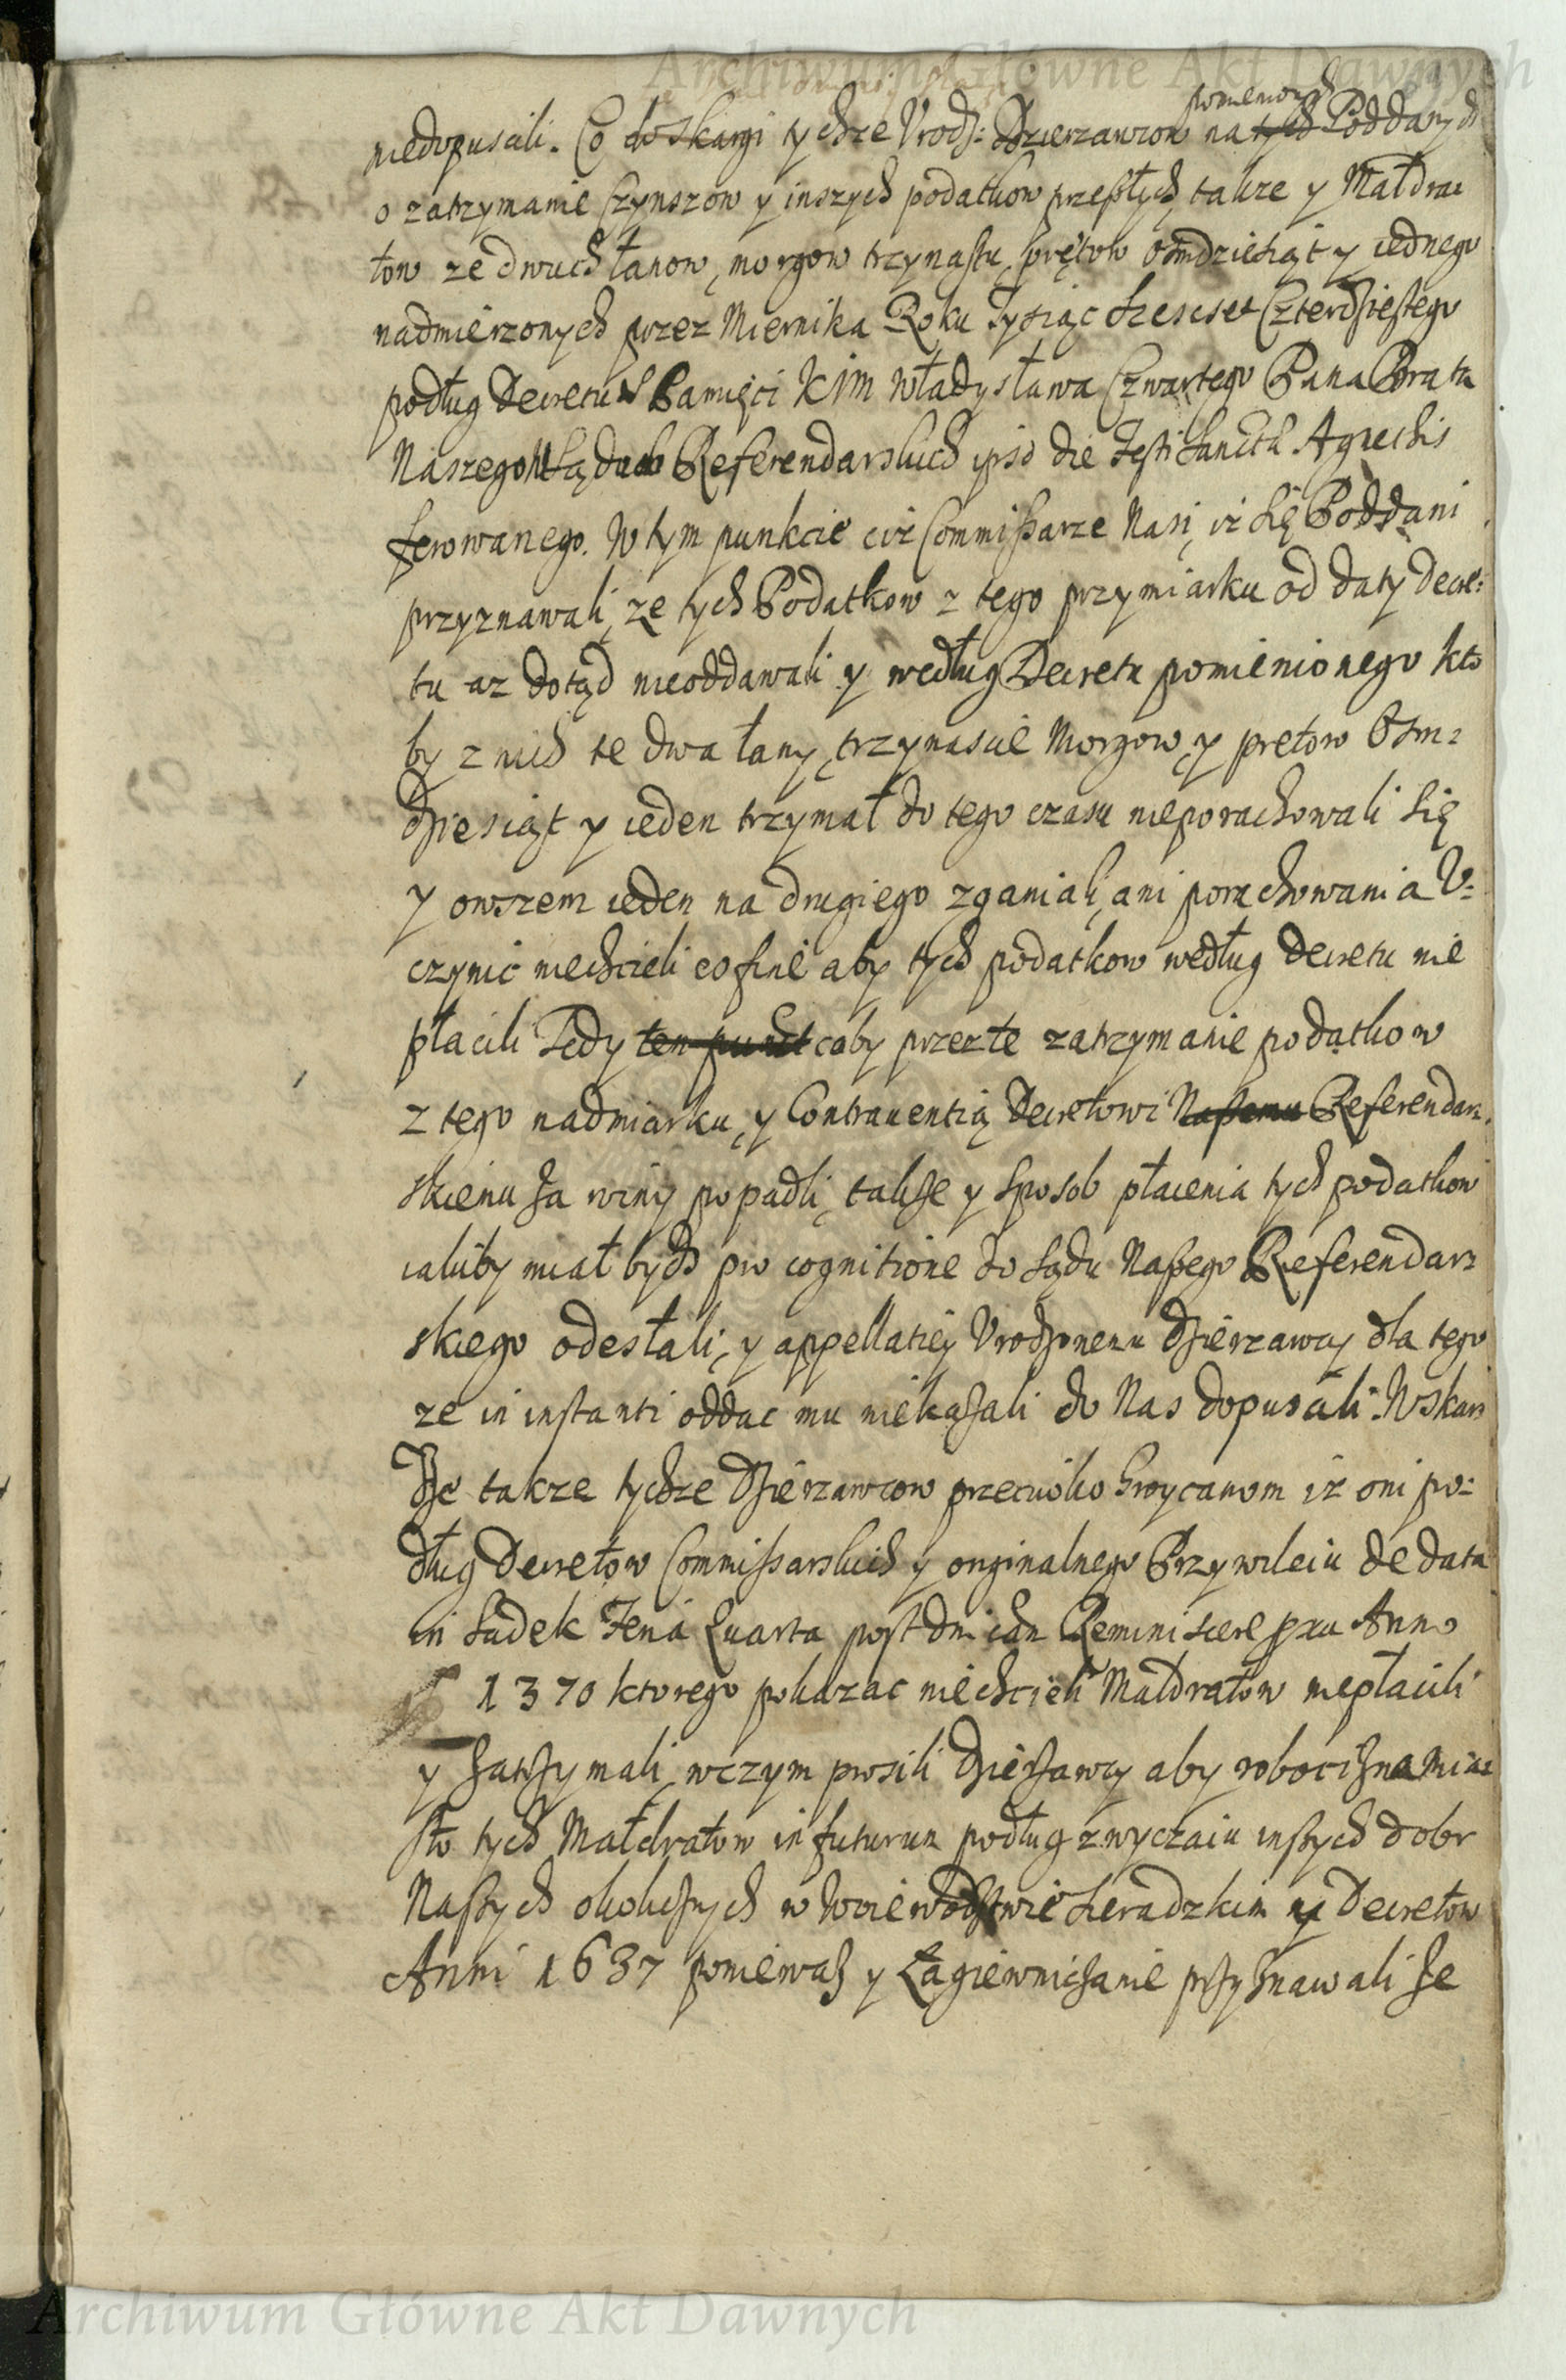 Archiwum Główne Akt Dawnych
niedopuscili. Co do skargi tychze Urodz: Dzierzawcow na tych Poddanych
o zatrzymanie Czynszow y inszych podatkow przeszłych, takze y Małdra-
tow ze dwuch łanow, morgow trzynastu, prętow osmdziesiąt y iednego
nadmierzonych przez Miernika Roku Tysiąc szescset Czterdziestego
podług Decretu S Pamięci KJM Władysława Czwartego Pana Brata
Naszego w Sądach Referendarskich ipso die festi Sanctae Agnethis
ferowanego. W tym punkcie ciż Commissarze Nasi, iż się Poddani
przyznawali, ze tych Podatkow z tego przymiarku od daty Decre:
tu az dotąd nieoddawali y według Decretu pomienionego kto
by z nich te dwa łany, trzynascie Morgow, y prętow Osm:
dziesiąt y ieden trzymał do tego czasu nieporachowali się
y owszem ieden na drugiego zganiali, ani porachowania U:
czynic niechcieli eo fine aby tych podatkow według Decretu nie
płacili Tedy ten punct coby przez te zatrzymanie podatkow
z tego nadmiarku, y Contrauentią Decretowi Naszemu Referendar:
skiemu za winy popadli, takze y sposob płacenia tych podatkow
iakiby miał bydz pro cognitione do Sądu Naszego Referendar:
skiego odesłali, y appellatiey Urodzonemu Dzierzawcy dla tego
ze in instanti oddac mu niekazali do Nas dopuscili. W skar:
dze takze tychze Dzierzawcow przeciwko Groycanom iż oni po:
dług Decretow Commissarskich y originalnego Przywileiu de data
in Sadek Feria Quarta post dnicam Reminiscere pxa Anno
1370 ktorego pokazac niechcieli Małdratow niepłacili
y zatrzymali, wczym prosili Dzierzawcy aby robocizna mia:
sto tych Małdratow in futurum podług zwyczaiu inszych dobr
Naszych okolicznych w Woiewodztwie Sieradzkim y Decretow
Anni 1637 poniewaz y Łagiewniczanie przyznawali ze
Archiwum Główne Akt Dawnych